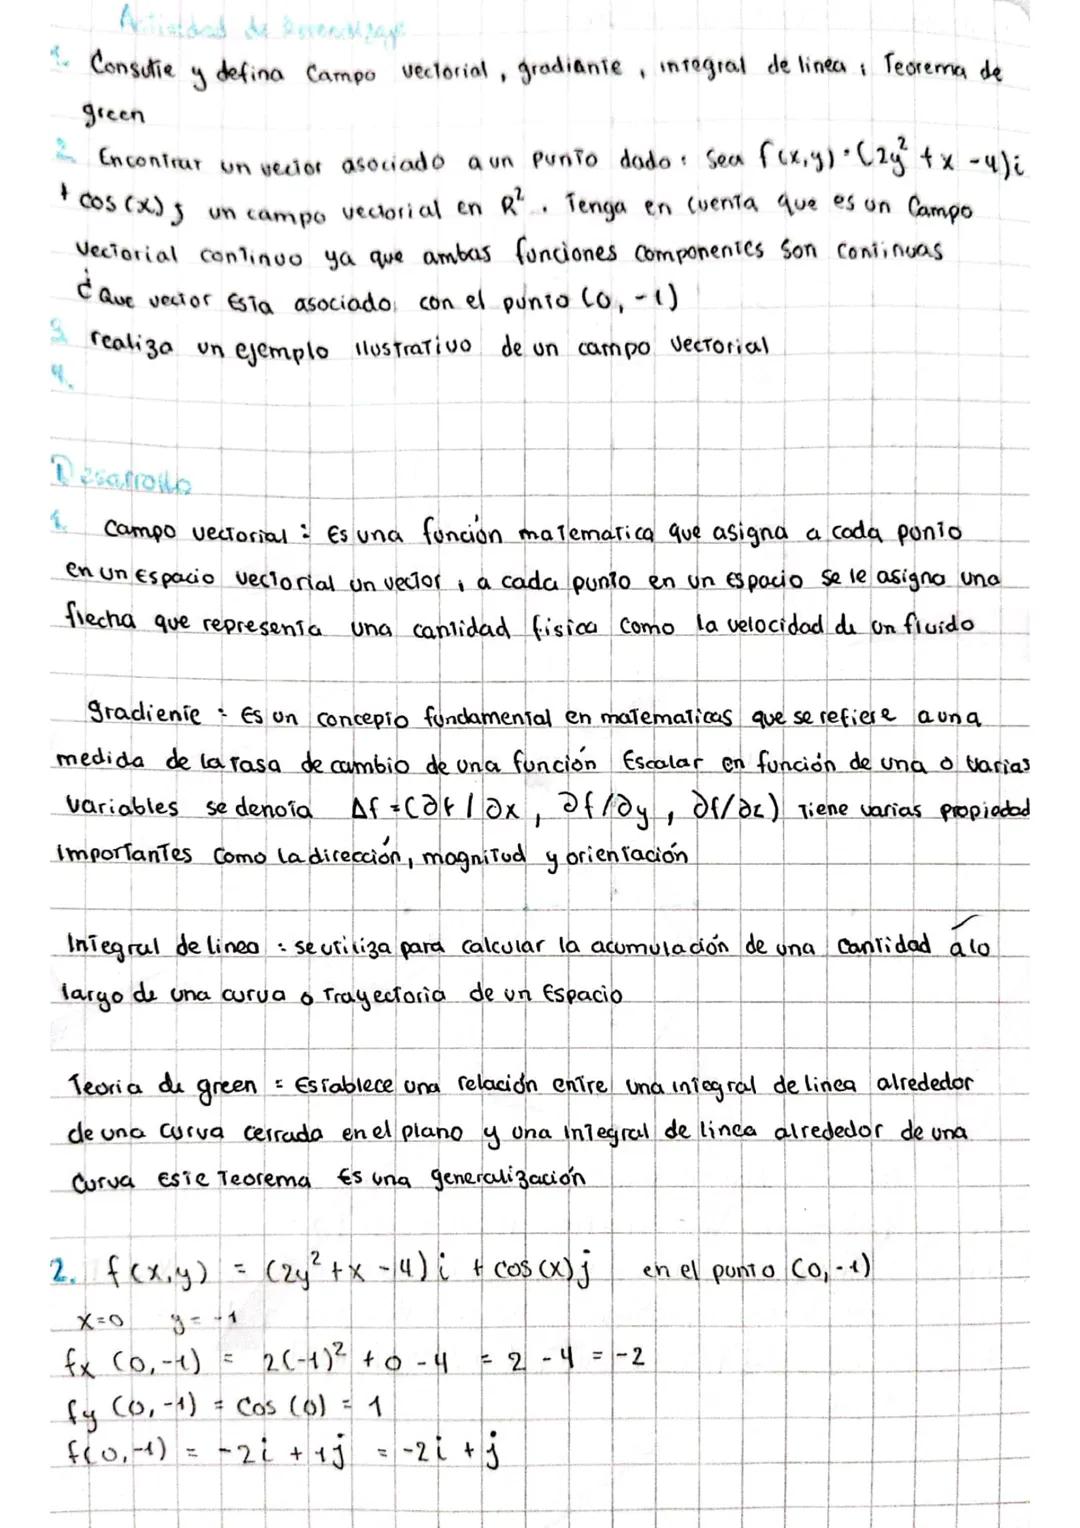 Actividad de Aprendizaje
1. Consulte y defina Campo vectorial, gradiante, integral de linea, Teorema de
green
2. Encontrar un vector asociado a un punto dado: Sea f(x,y) = (2y² + x - 4)i
+ cos(x)j un campo vectorial en R². Tenga en cuenta que es un Campo
Vectorial continuo ya que ambas funciones componentes son continuas
¿Que vector Esta asociado con el punto (0, -1)
3. realiza un ejemplo ilustrativo de un campo vectorial
4.
Desarrollo
1. Campo vectorial: Es una función matematica que asigna a cada punto
en un Espacio vectorial un vector, a cada punto en un espacio se le asigna una
flecha que representa una cantidad fisica como la velocidad de un fluido
gradiente: Es un concepto fundamental en matematicas que se refiere a una
medida de la tasa de cambio de una función Escalar en función de una o varias
variables se denota Δf = (∂f/∂x, ∂f/∂y, ∂f/∂z) Tiene varias propiedad
importantes como la dirección, magnitud y orientación
Integral de linea: se utiliza para calcular la acumulación de una cantidad a lo
largo de una curva o Trayectoria de un Espacio
Teoria de green = Establece una relación entre una integral de linea alrededor
de una curva cerrada en el plano y una integral de linea alrededor de una
Curva este Teorema Es una generalización
2. f(x,y) = (2y² + x - 4)i + cos(x)j en el punto (0,-1)
x=0 y = -1
fx (0,-1) = 2(-1)² + 0 - 4 = 2 - 4 = -2
fy (0,-1) = Cos (0) = 1
f(0,-1) = -2i + 1j = -2i + j